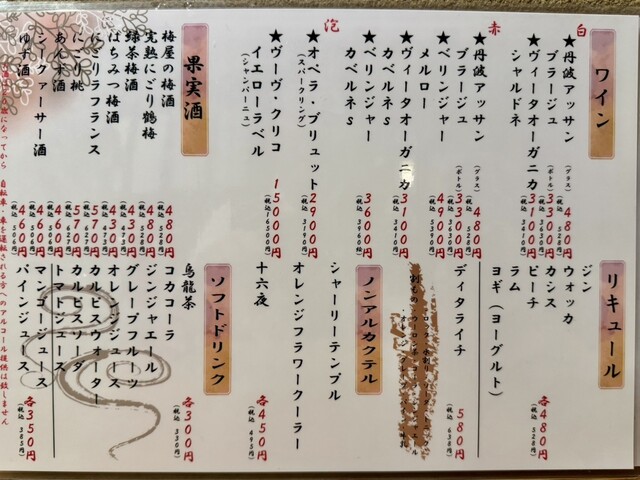 ワイン
白
★丹波アッサン
ブラージュ
(グラス) 480円
(税込 528円)
(ボトル) 3300円
★ヴィータオーガニカ
シャルドネ
3100円
(税込 3410円)
赤
★丹波アッサン
ブラージュ
(グラス) 480円
(税込 528円)
(ボトル)
★ベリンジャー
メルロー
4900円
★ヴィータオーガニカ
カベルネs
3100円
(税込 3410円)
★ベリンジャー
カベルネs
3600円
(税込 3960円)
泡
★オペラ・ブリュット
(スパークリング)
2900円
(税込 3190円)
★ヴーヴ・クリコ
イエローラベル
(シャンパーニュ)
15000円
(税込 16500円)
果実酒
梅屋の梅酒 480円
(税込 528円)
完熟にごり鶴梅 480円
(税込 528円)
緑茶梅酒 430円
(税込 473円)
はちみつ梅酒
にごりラフランス 570円
(税込 627円)
にごり桃 570円
(税込 627円)
あんず酒 460円
(税込 506円)
シイクァーサー酒 460円
(税込 506円)
ゆず酒 460円
(税込 506円)
リキュール
ジン
ウォッカ
カシス
ピーチ
ラム
ヨギ(ヨーグルト)
各480円
(税込 528円)
ディタライチ
580円
(税込 638円)
ノンアルカクテル
シャーリーテンプル
オレンジフラワークーラー
十六夜
各450円
(税込 495円)
ソフトドリンク
烏龍茶
コカコーラ
各300円
(税込 330円)
ジンジャエール
グレープフルーツ
オレンジジュース
カルピスウォーター
カルピスソーダ
トマトジュース
マンゴージュース
パインジュース
各350円
(税込 385円)
になってから 自転車・車を運転される方へのアルコール提供は致しません